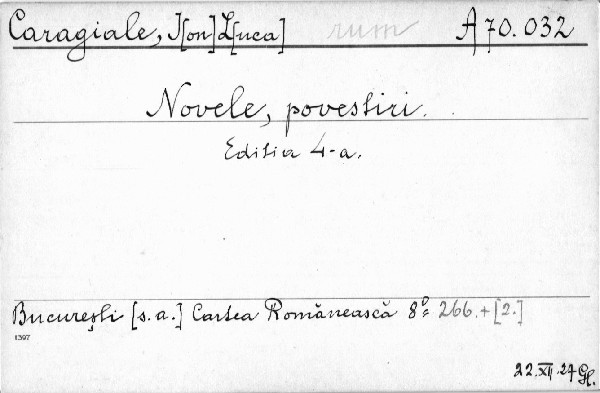 Caragiale, I[on] L[uca] rum A 70.032
Novele, povestiri.
Editia 4-a.
București [s.a.] Cartea Românească 8° 266.+[2.]
1397
22.XII.27 Gl.